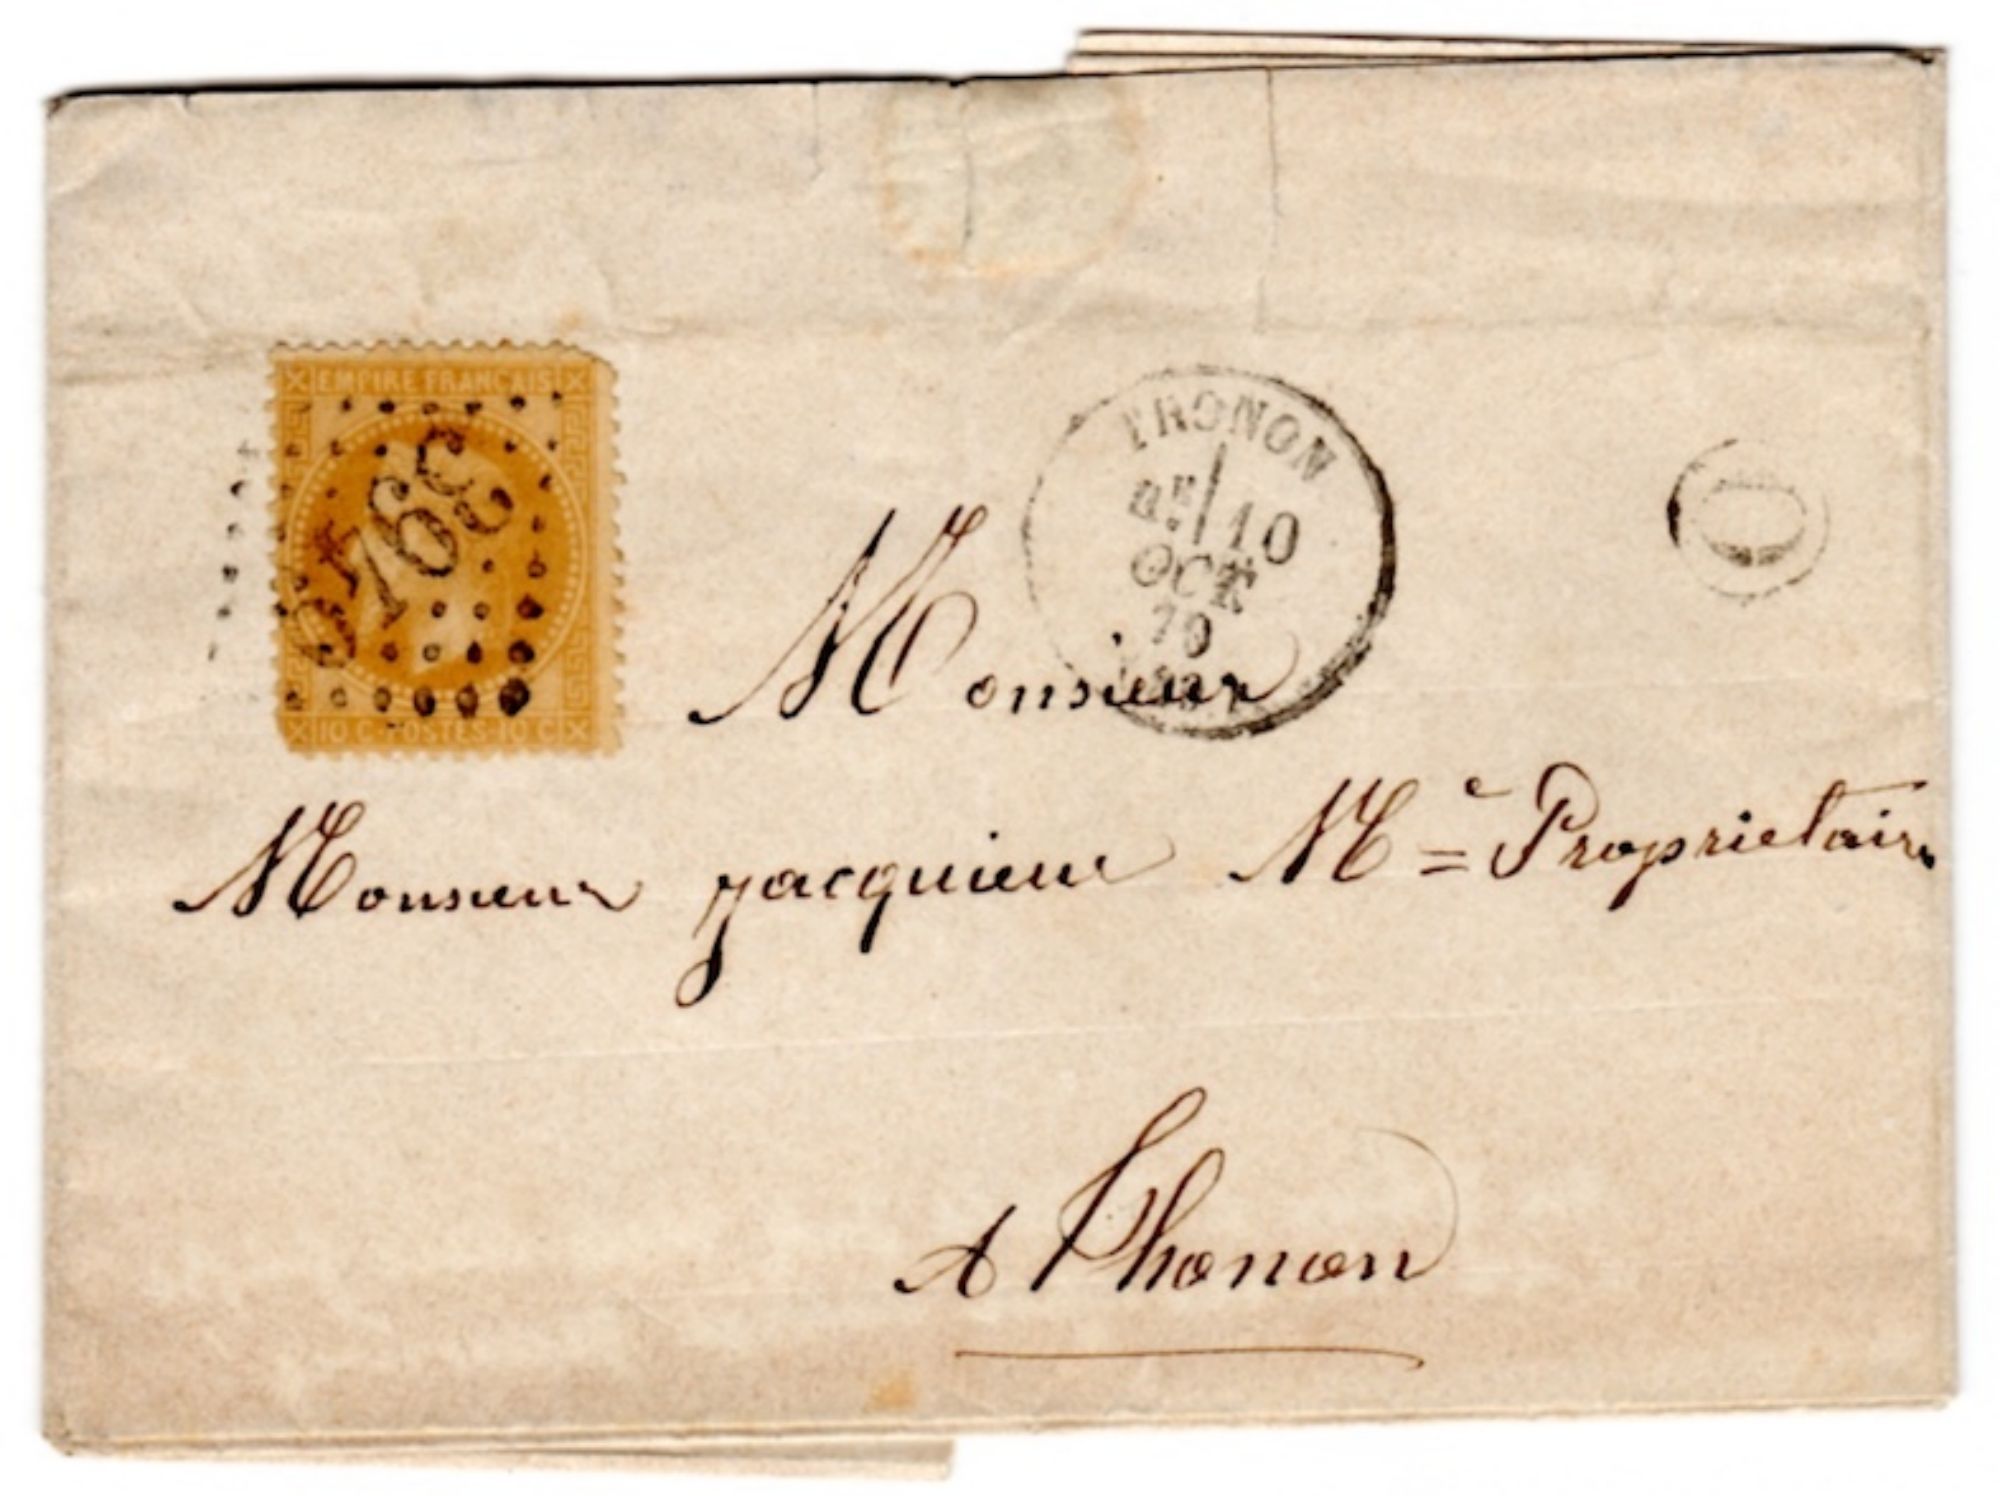 EMPIRE FRANÇAIS
10 C · POSTES · 10 C
THONON
2E 10
OCT
70
O
Monsieur
Monsieur Jacquieur Me = Proprietaire
A Thonon